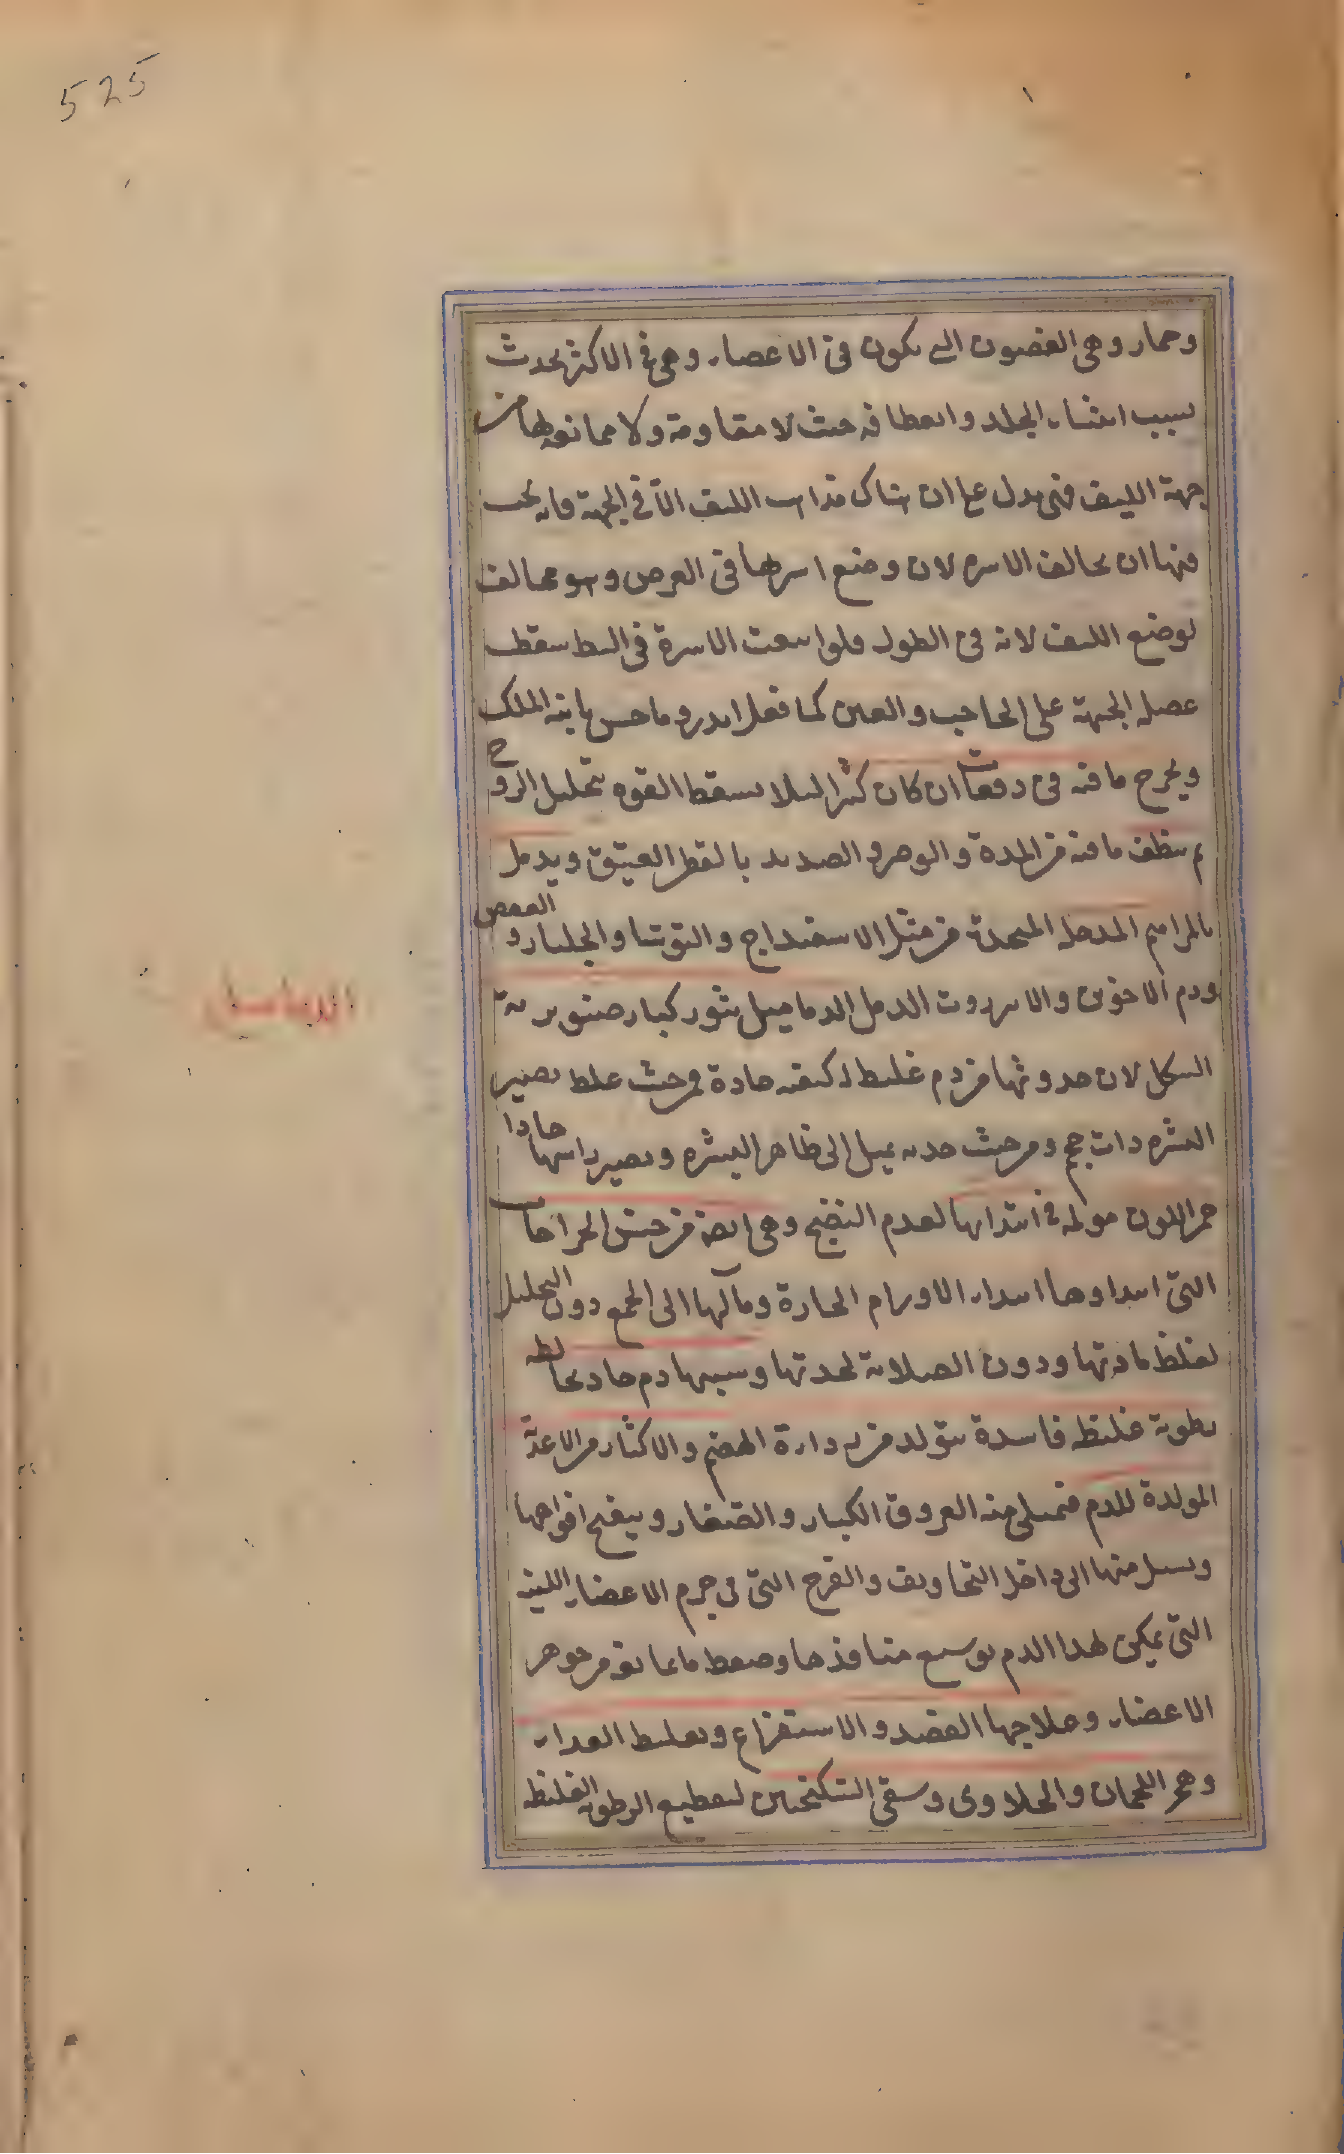 525
وحمار وهى الغضون التى يكون فى الاعضاء وهى فى الاكثر يحدث
بسبب انثناء الجلد وانعطافه حيث لا مقاومة ولا ممانعة لها من
جهة الليف فهى يدل على ان هناك مذاهب الليف الا فى الجبهة فانه يجب
فيها ان يخالف الاسرة لان وضع اسرتها فى العرض وهو مخالف
لوضع الليف لانه فى الطول فلو اتبعت الاسرة فى البط سقطت
عضلة الجبهة على الحاجب والعين كما فعل بابنة الملك
ويخرج ما فيه فى دفعات ان كان كثيرا لئلا يسقط القوة بتحليل الروح
ثم ينظف ما فيه من المدة والوضر والصديد بالقطن العتيق ويدمل
بالمراهم المدملة المتخذة من مثل الاسفيداج والتوتيا والجلنار والعفص
ودم الاخوين والانزروت الدمل الدماميل بثور كبار صنوبرية
الشكل لان حدوثها من دم غليظ ذى كيفية حادة فمن حيث غلظه يصير
البثرة ذات حجم ومن حيث حدته يميل الى ظاهر البشرة ويصير راسها حادا
حمر اللون مولمة فى ابتدائها لعدم النضج وهى ايضا من جنس الخراجات
التى ابتداوها ابتداء الاورام الحارة ومآلها الى الجمع دون التحليل
لغلظ مادتها ودون الصلابة لحدتها وسببها دم حاد يخالطه
رطوبة غليظة فاسدة يتولد من رداءة الهضم والاكثار من الاغذية
المولدة للدم فيمتلى منه العروق الكبار والصغار وينفتح افواهها
ويسيل منها الى داخل التجاويف والفرج التى فى جرم الاعضاء اللينة
التى يمكن لهذا الدم توسيع منافذها وضغط ما يمانعه من جوهر
الاعضاء وعلاجها الفصد والاستفراغ وتغليظ الغذاء
وهجر اللحمان والحلاوى وسقى السكنجبين لتقطيع الرطوبة الغليظة
الدماميل